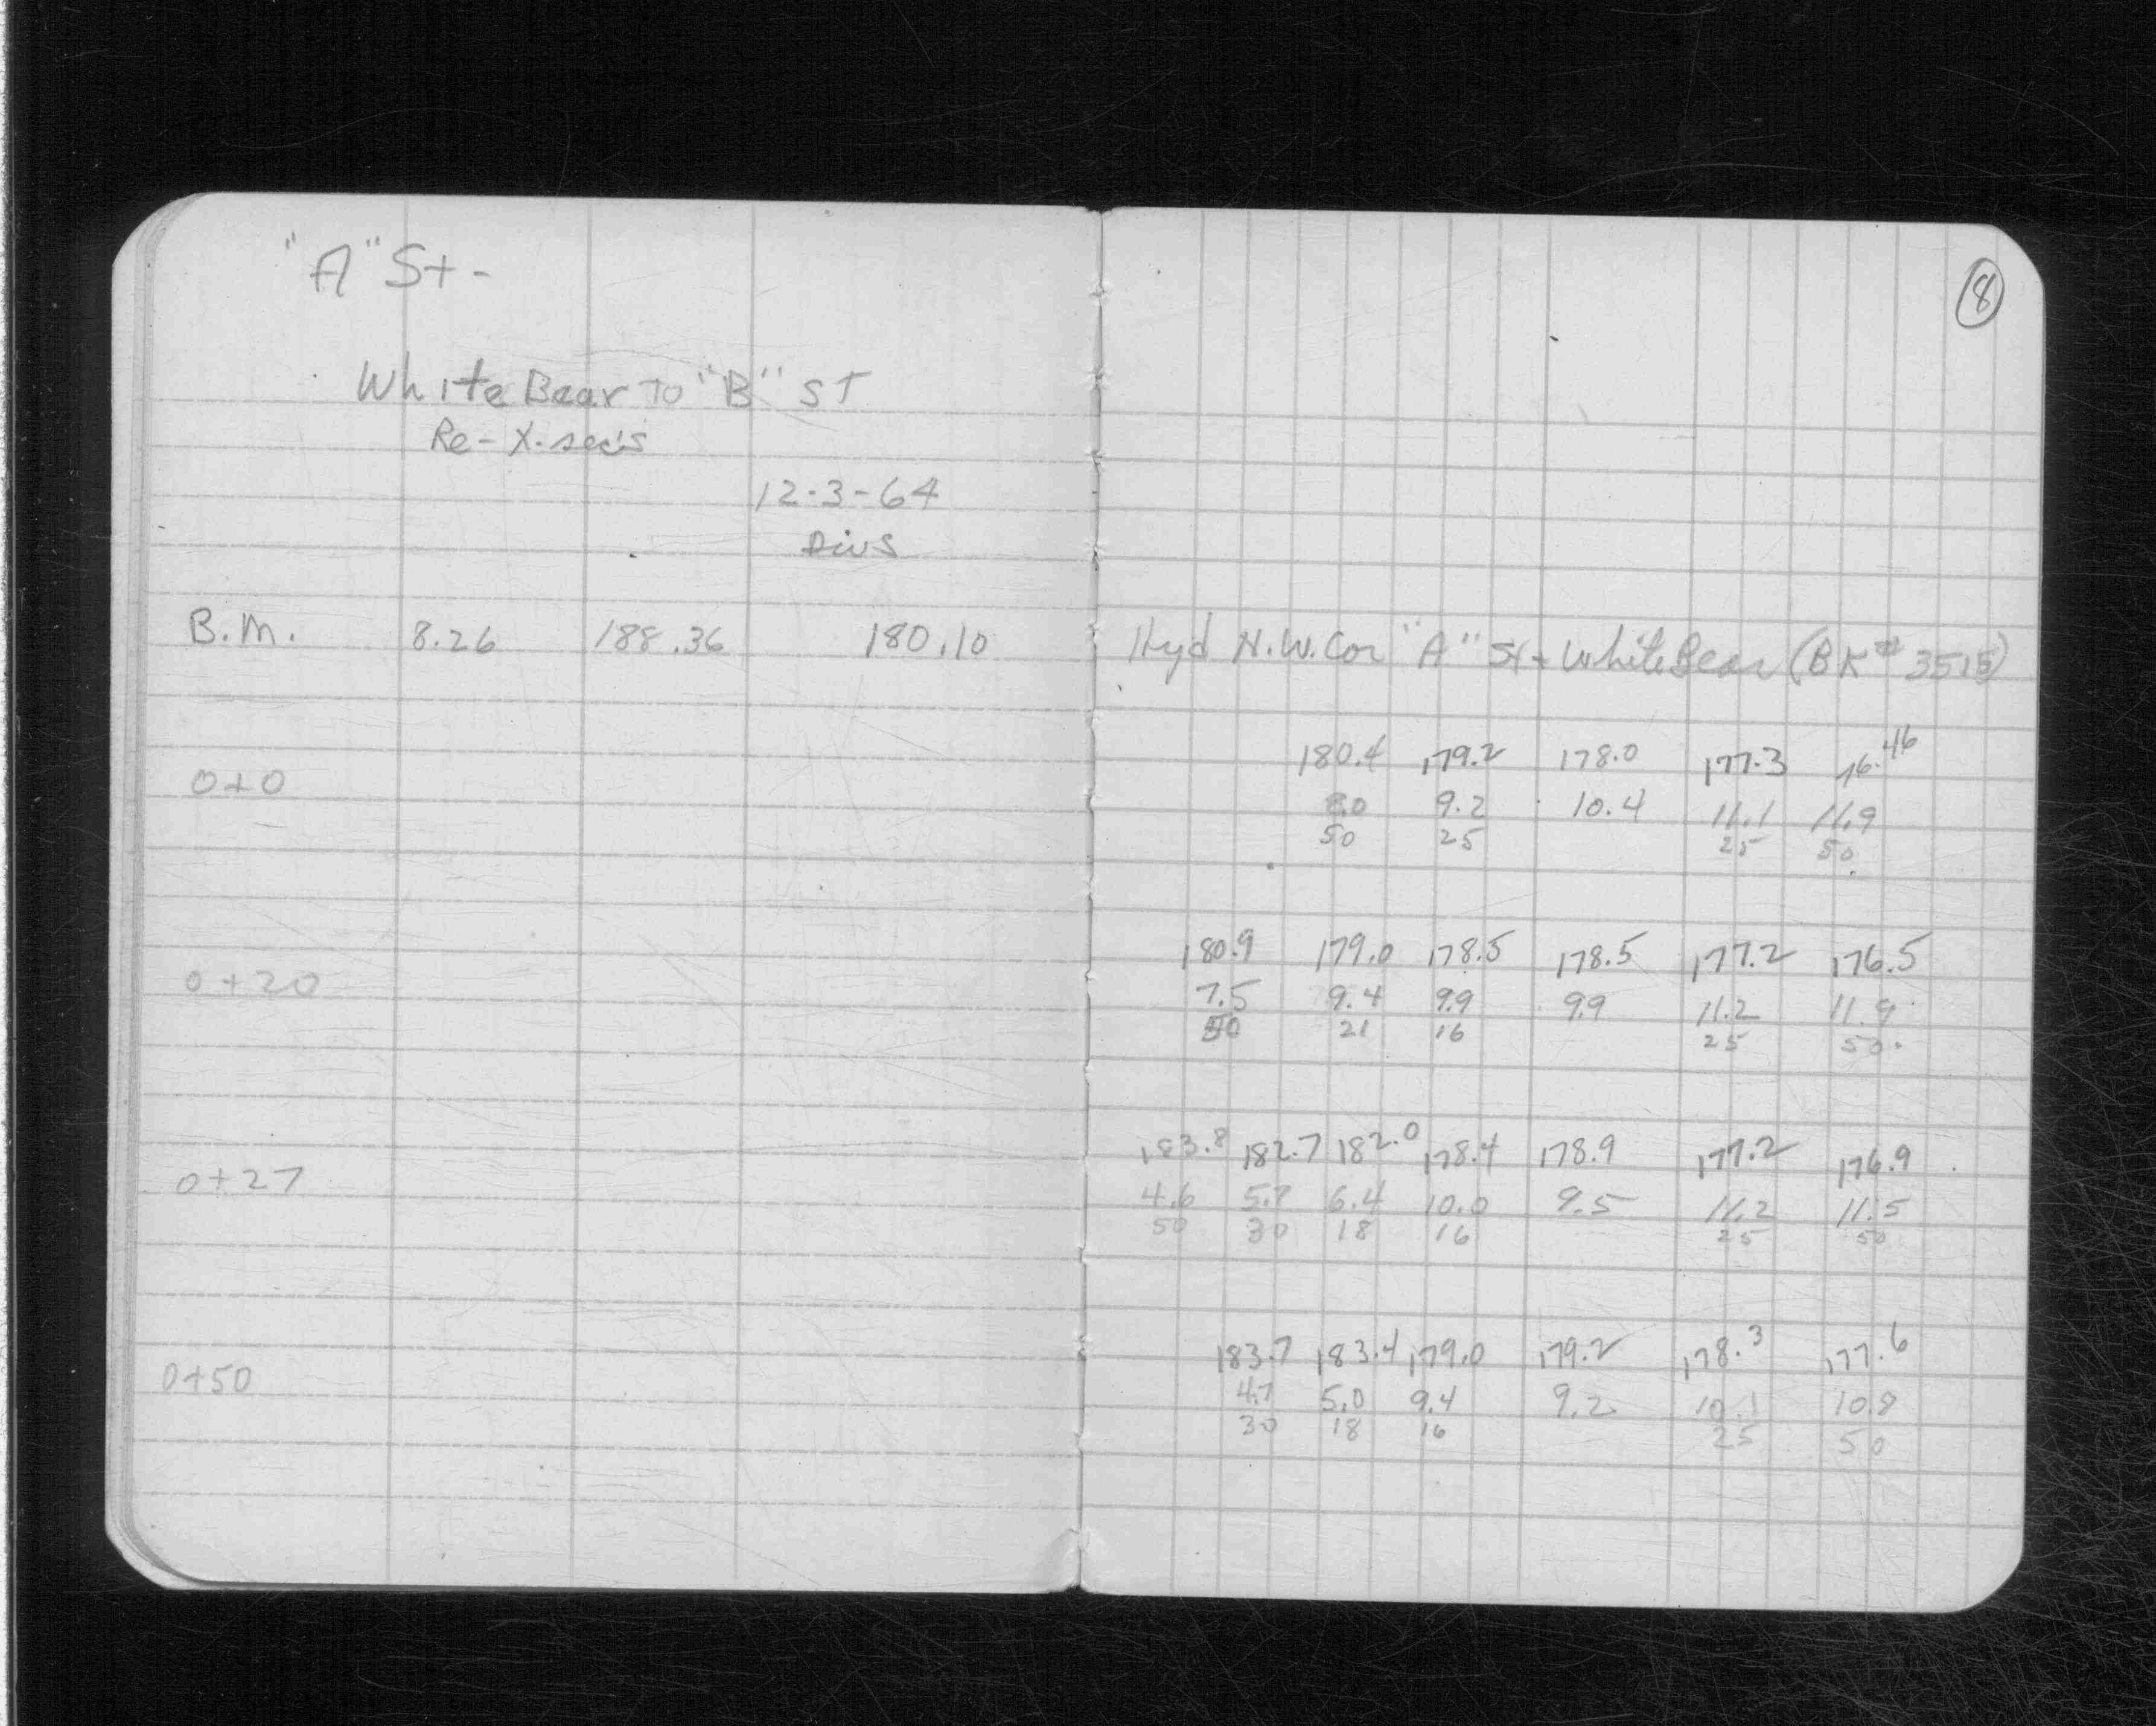 "A" St -
8
White Bear To "B" ST
Re-X-sec's
12-3-64
B.M. 8.26 188.36 180.10 Hyd N.W. Cor "A" St + White Bear (BK # 3515)
180.4 179.2 178.0 177.3 76.46
0+0 8.0 9.2 10.4 11.1 11.9
50 25 25 50
180.9 179.0 178.5 178.5 177.2 176.5
0+20 7.5 9.4 9.9 9.9 11.2 11.9
50 21 16 25 50
183.8 182.7 182.0 178.4 178.9 177.2 176.9
0+27 4.6 5.7 6.4 10.0 9.5 11.2 11.5
50 30 18 16 25 50
183.7 183.4 179.0 179.2 178.3 177.6
0+50 4.7 5.0 9.4 9.2 10.1 10.8
30 18 16 25 50